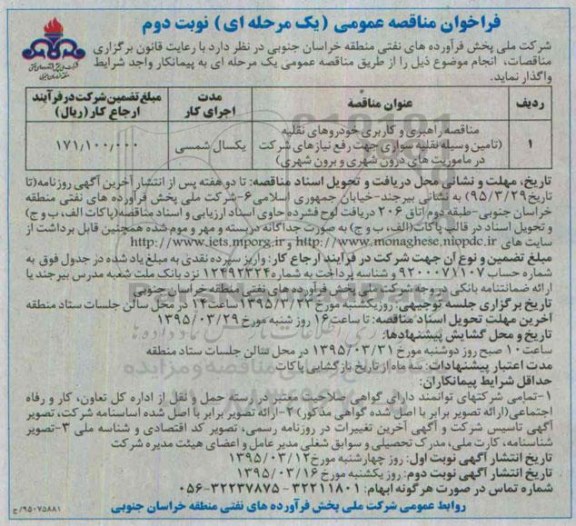 فراخوان مناقصه عمومی (یک مرحله ای) نوبت دوم
شرکت ملی پخش فرآورده های نفتی منطقه خراسان جنوبی در نظر دارد با رعایت قانون برگزاری
مناقصات، انجام موضوع ذیل را از طریق مناقصه عمومی یک مرحله ای به پیمانکار واجد شرایط
واگذار نماید.
ردیف عنوان مناقصه مدت اجرای کار مبلغ تضمین شرکت در فرآیند ارجاع کار (ریال)
۱ مناقصه راهبری و کاربری خودروهای نقلیه
(تامین وسیله نقلیه سواری جهت رفع نیازهای شرکت
در ماموریت های درون شهری و برون شهری) یکسال شمسی ۱۷۱٫۱۰۰٫۰۰۰
تاریخ، مهلت و نشانی محل دریافت و تحویل اسناد مناقصه: تا دو هفته پس از انتشار آخرین آگهی روزنامه(تا
تاریخ ۹۵/۳/۲۹) به نشانی بیرجند-خیابان جمهوری اسلامی۶-شرکت ملی پخش فرآورده های نفتی منطقه
خراسان جنوبی-طبقه دوم اتاق ۲۰۶ دریافت لوح فشرده حاوی اسناد ارزیابی و اسناد مناقصه(پاکات الف، ب و ج)
و تحویل اسناد در قالب پاکات(الف، ب و ج) به صورت جداگانه دربسته و مهر و موم شده همچنین قابل برداشت از
سایت های http://www.monaghese.niopdc.ir و http://www.iets.mporg.ir
مبلغ تضمین و نوع آن جهت شرکت در فرآیند ارجاع کار: واریز سپرده نقدی به مبلغ یاد شده در جدول فوق به
شماره حساب ۹۲۰۰۰۷۱۱۰۷ و شناسه پرداخت به شماره ۱۲۴۹۲۳۲۴ نزد بانک ملت شعبه مدرس بیرجند یا
ارائه ضمانتنامه بانکی در وجه شرکت ملی پخش فرآورده های نفتی منطقه خراسان جنوبی
تاریخ برگزاری جلسه توجیهی: روز یکشنبه مورخ ۱۳۹۵/۳/۲۳ ساعت ۱۴ در محل سالن جلسات ستاد منطقه
آخرین مهلت تحویل اسناد مناقصه: تا ساعت ۱۶ روز شنبه مورخ ۱۳۹۵/۰۳/۲۹
تاریخ و محل گشایش پیشنهادها:
ساعت ۱۰ صبح روز دوشنبه مورخ ۱۳۹۵/۰۳/۳۱ در محل سالن جلسات ستاد منطقه
مدت اعتبار پیشنهادات: سه ماه از تاریخ بازگشایی پاکات
حداقل شرایط پیمانکاران:
۱-تمامی شرکتهای توانمند دارای گواهی صلاحیت معتبر در رسته حمل و نقل از اداره کل تعاون، کار و رفاه
اجتماعی(ارائه تصویر برابر با اصل شده گواهی مذکور) ۲-ارائه تصویر برابر با اصل شده اساسنامه شرکت، تصویر
آگهی تاسیس شرکت و آگهی آخرین تغییرات در روزنامه رسمی، تصویر کد اقتصادی و شناسه ملی ۳-تصویر
شناسنامه، کارت ملی، مدرک تحصیلی و سوابق شغلی مدیر عامل و اعضای هیئت مدیره شرکت
تاریخ انتشار آگهی نوبت اول: روز چهارشنبه مورخ ۱۳۹۵/۰۳/۱۲
تاریخ انتشار آگهی نوبت دوم: روز یکشنبه مورخ ۱۳۹۵/۰۳/۱۶
شماره تماس در صورت هرگونه ابهام: ۳۲۲۱۱۸۰۱ - ۳۲۲۳۷۸۷۵-۰۵۶
روابط عمومی شرکت ملی پخش فرآورده های نفتی منطقه خراسان جنوبی
۹۵۰۷۵۸۸۱/ج